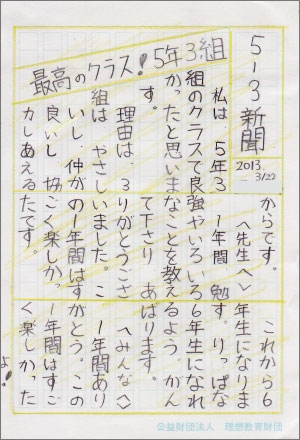 5-3新聞
2013. 3/22
最高のクラス!5年3組
私は、5年3
組のクラスで良
かったと思いま
す。
理由は、3
組は、やさし
いし、仲が
良いし、協
力しあえる
からです。
〈先生へ〉
1年間、勉
強やいろいろ
なことを教え
て下さり、あ
りがとうござ
いました。こ
の1年間はす
ごく楽しかっ
たです。
これから6
年生になりま
す。りっぱな
6年生になれ
るよう、がん
ばります。
〈みんなへ〉
1年間あり
がとう。この
1年間はすご
く楽しかった
よ!
公益財団法人 理想教育財団